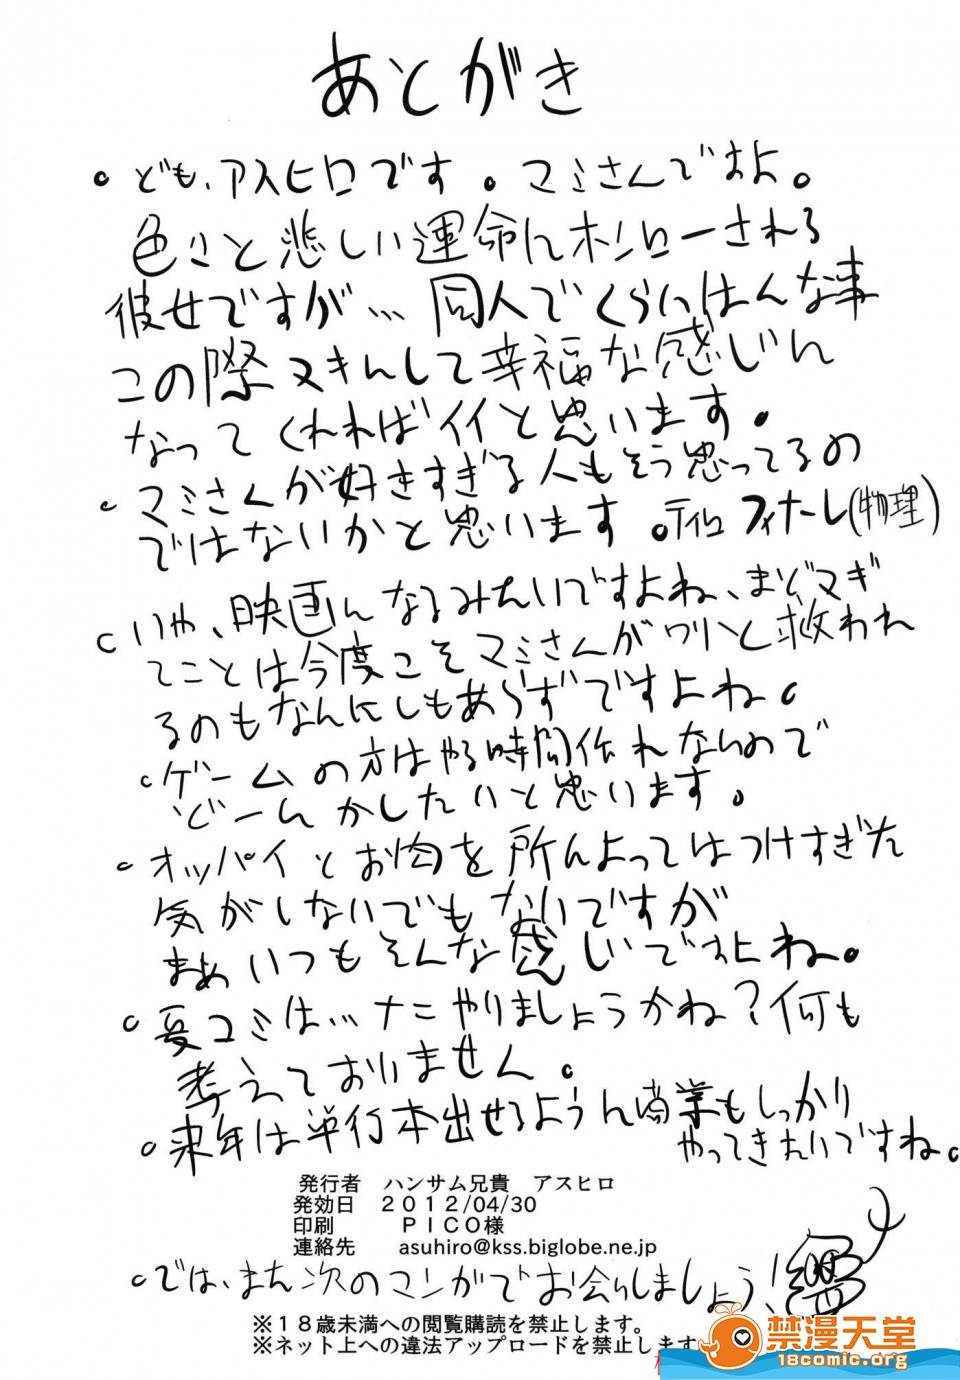 あとがき
。ども、アスヒロです。マミさんですよ。
色々と悲しい運命にホンローされる
彼女ですが… 同人でくらいはんな事
この際ヌキにして幸福な感じに
なってくれればイイと思います。
。マミさんが好きすぎる人もそう思ってるの
ではないかと思います。ティロフィナーレ(物理)
。いや、映画になるみたいですよね、まどマギ
てことは今度こそマミさんがワリと救われ
るのもなんにしもあらずですよね。
。ゲームの方はやる時間作れないので
どーにかしたいと思います。
。オッパイとお肉を所によってはつけすぎた
気がしないでもないですが
まぁいつもそんな感じですよね。
。夏コミは…ナニやりましょうかね?何も
考えておりません。
。来年は単行本出せるように商業もしっかり
やってきたいですね。
発行者 ハンサム兄貴 アスヒロ
発効日 2012/04/30
印刷 PICO様
連絡先 asuhiro@kss.biglobe.ne.jp
。では、また次のマンガでお会いしましょう!
※18歳未満への閲覧購読を禁止します。
※ネット上への違法アップロードを禁止します
禁漫天堂
18comic.org